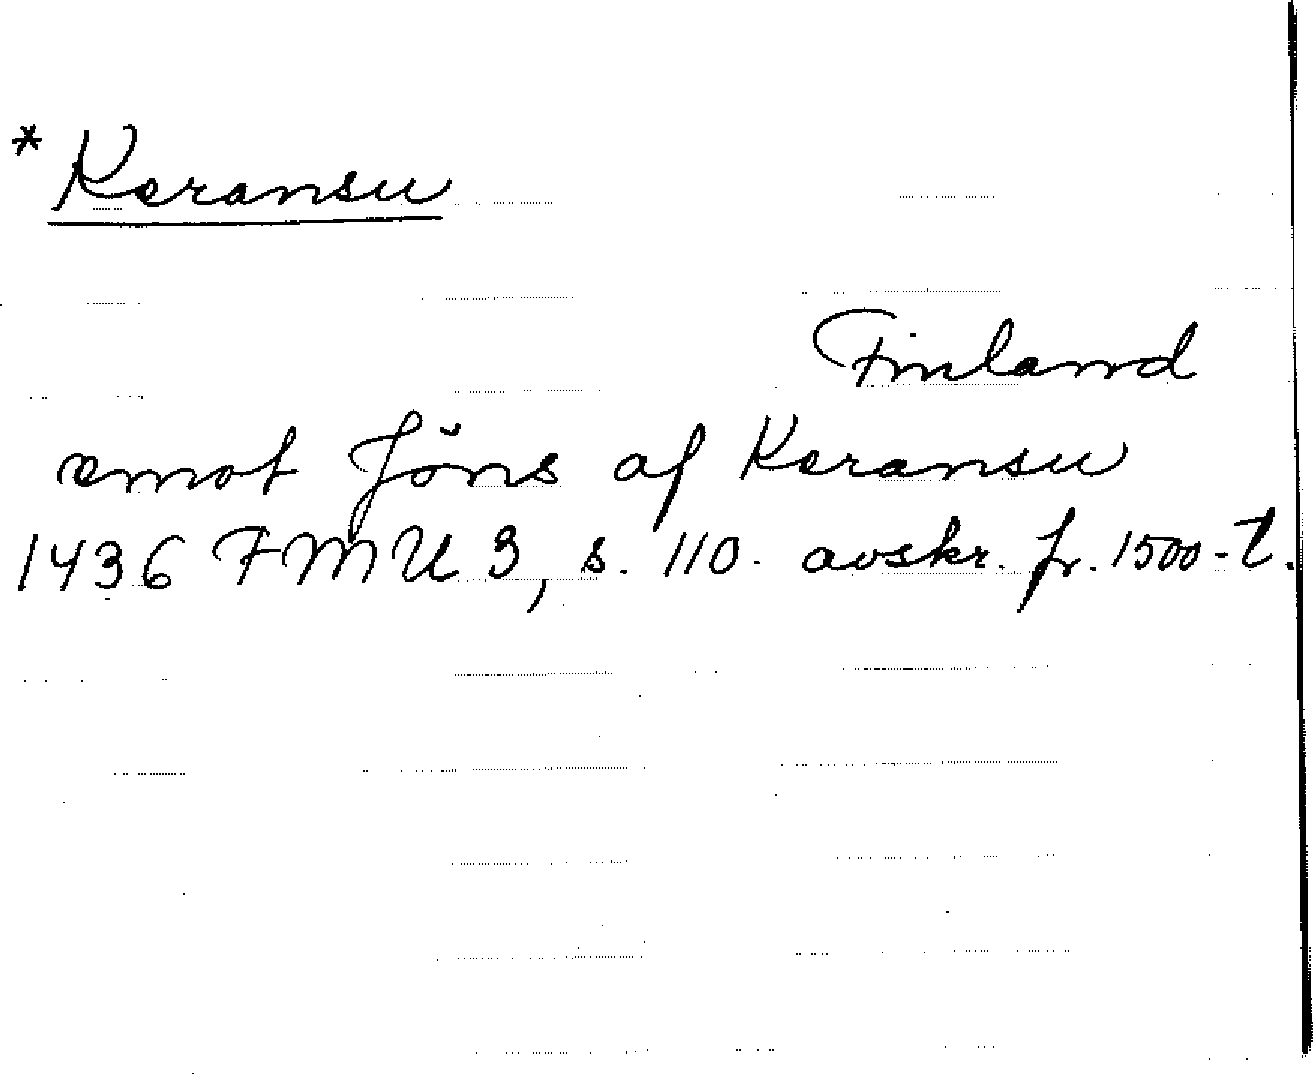 * Keransu
Finland
emot Jöns af Keransu
1436 FMU 3, s. 110. avskr. fr. 1500-t.